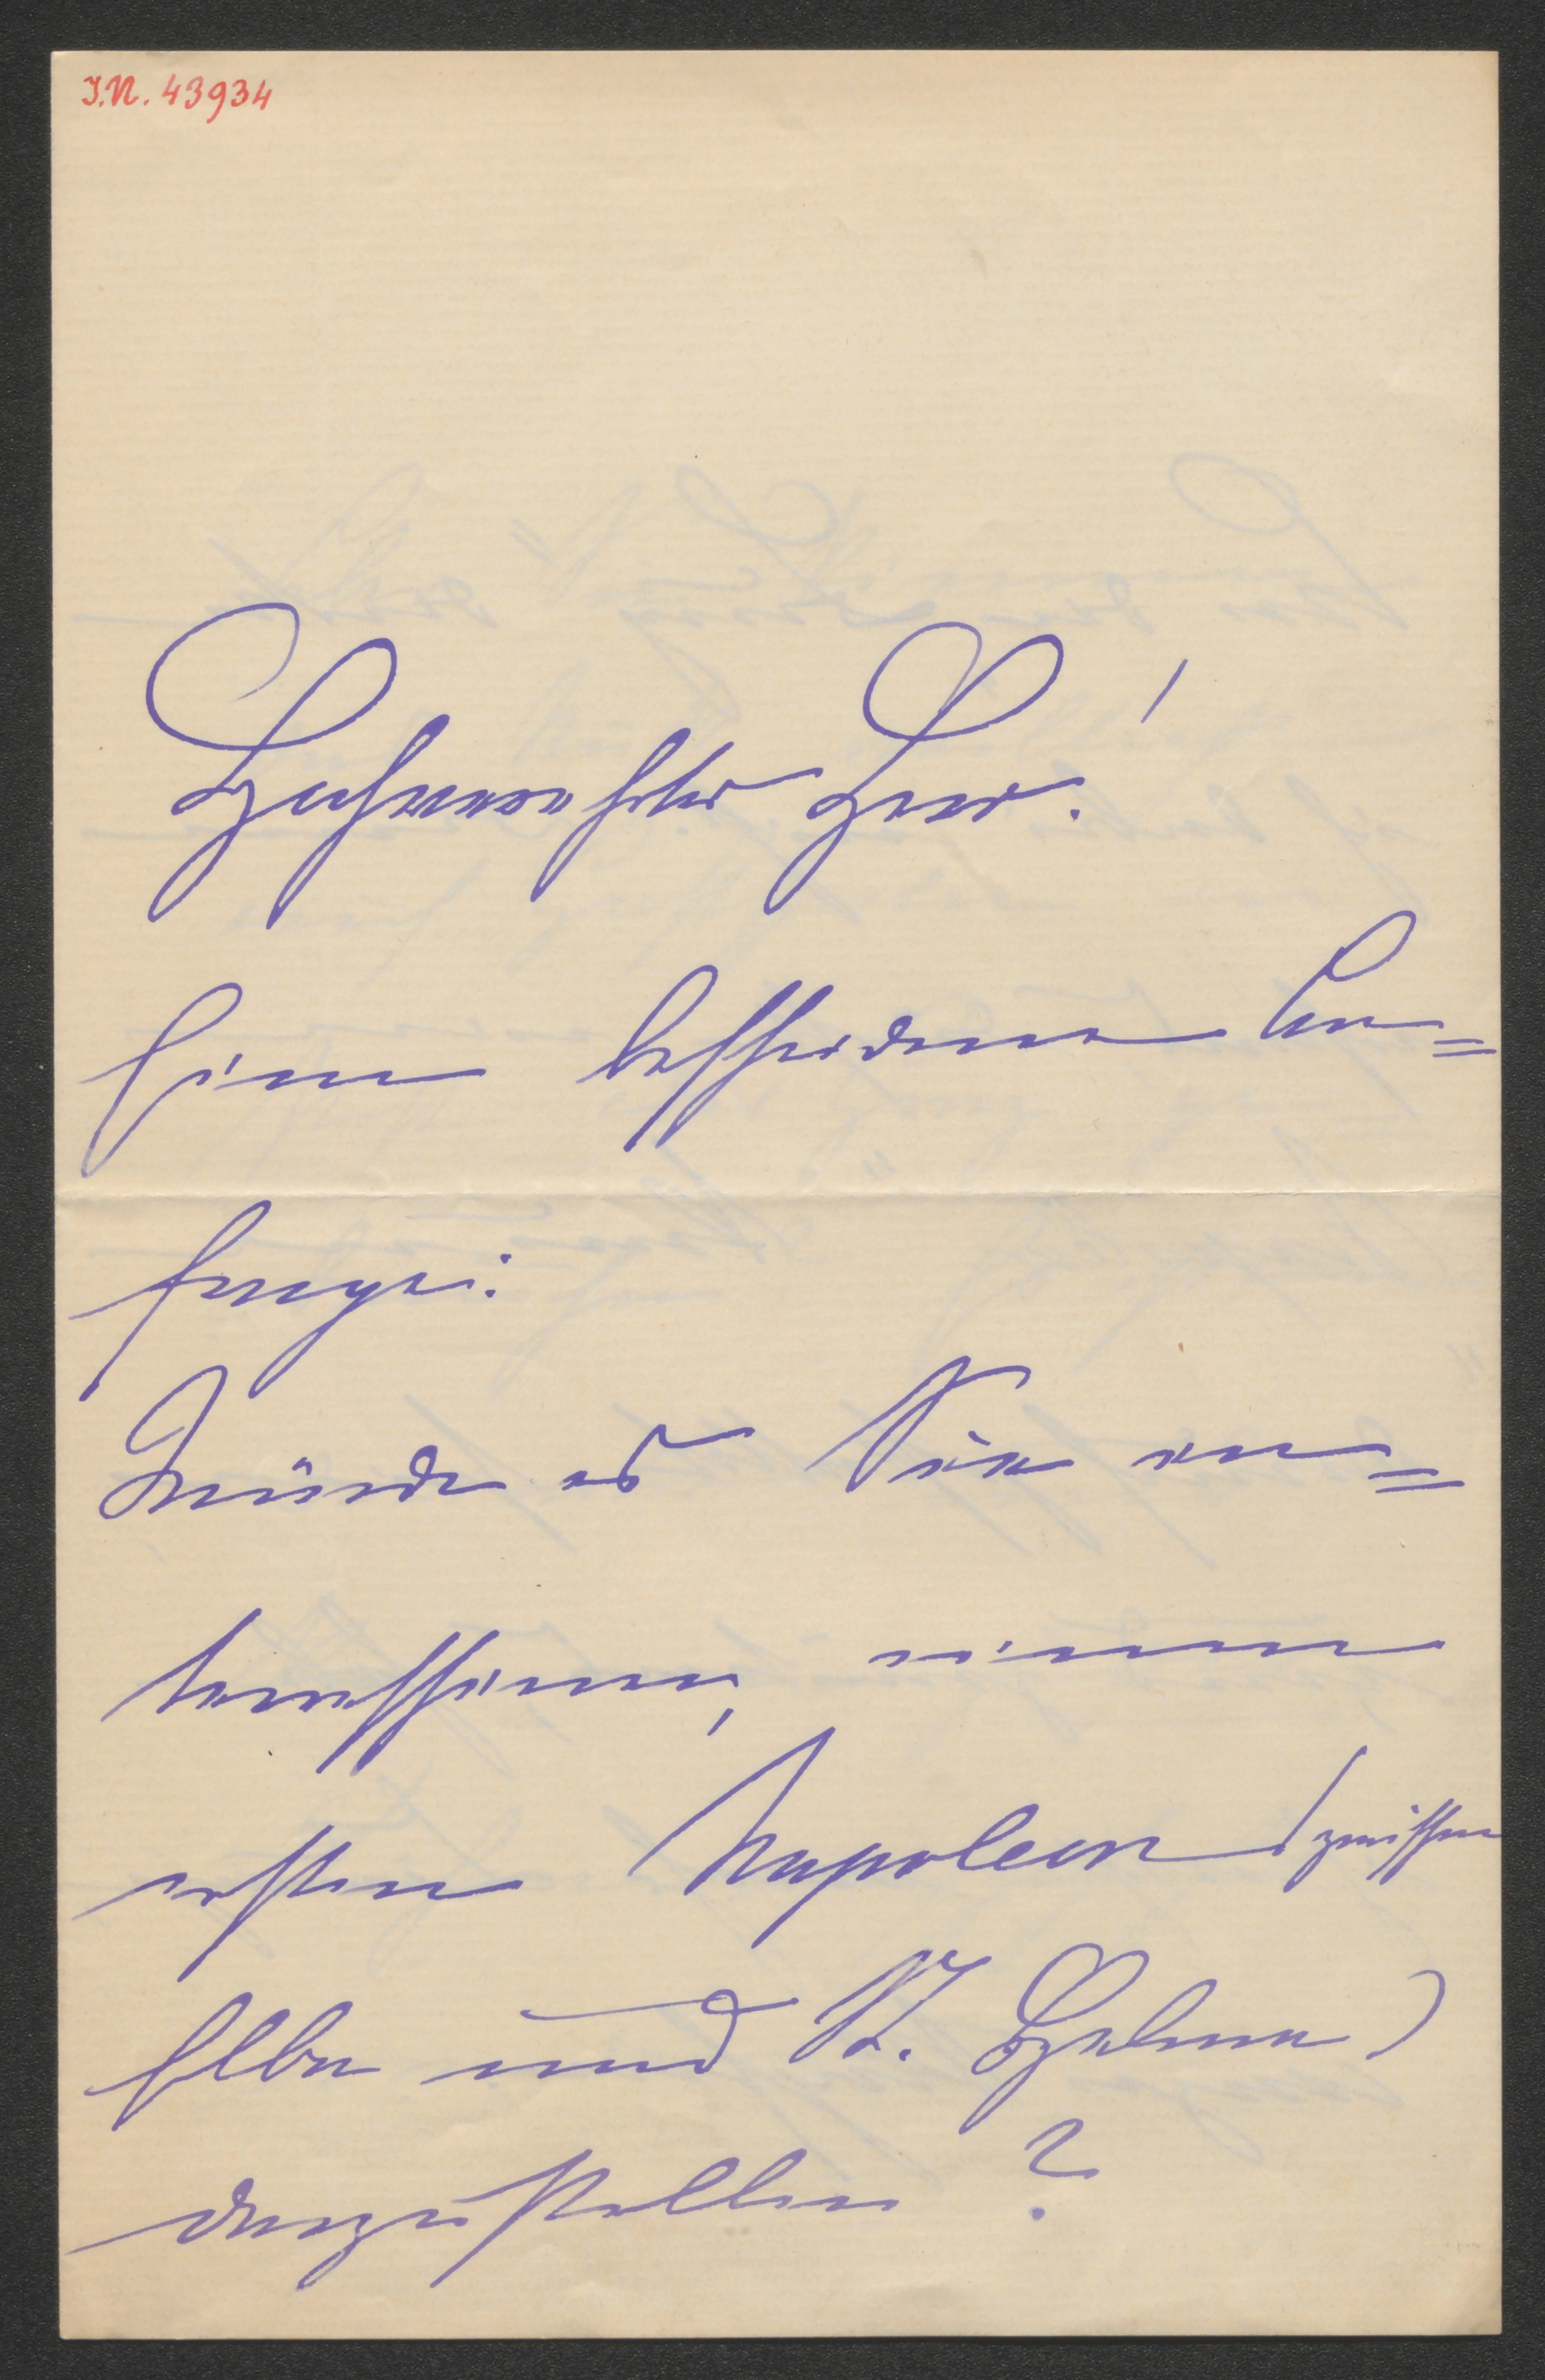 I.N. 43934
Hochverehrter Herr!
Eine bescheidene An=
frage:
Würde es Sie in=
teressieren, einen
ersten Napoleon (zwischen
Elba und St. Helena)
darzustellen?